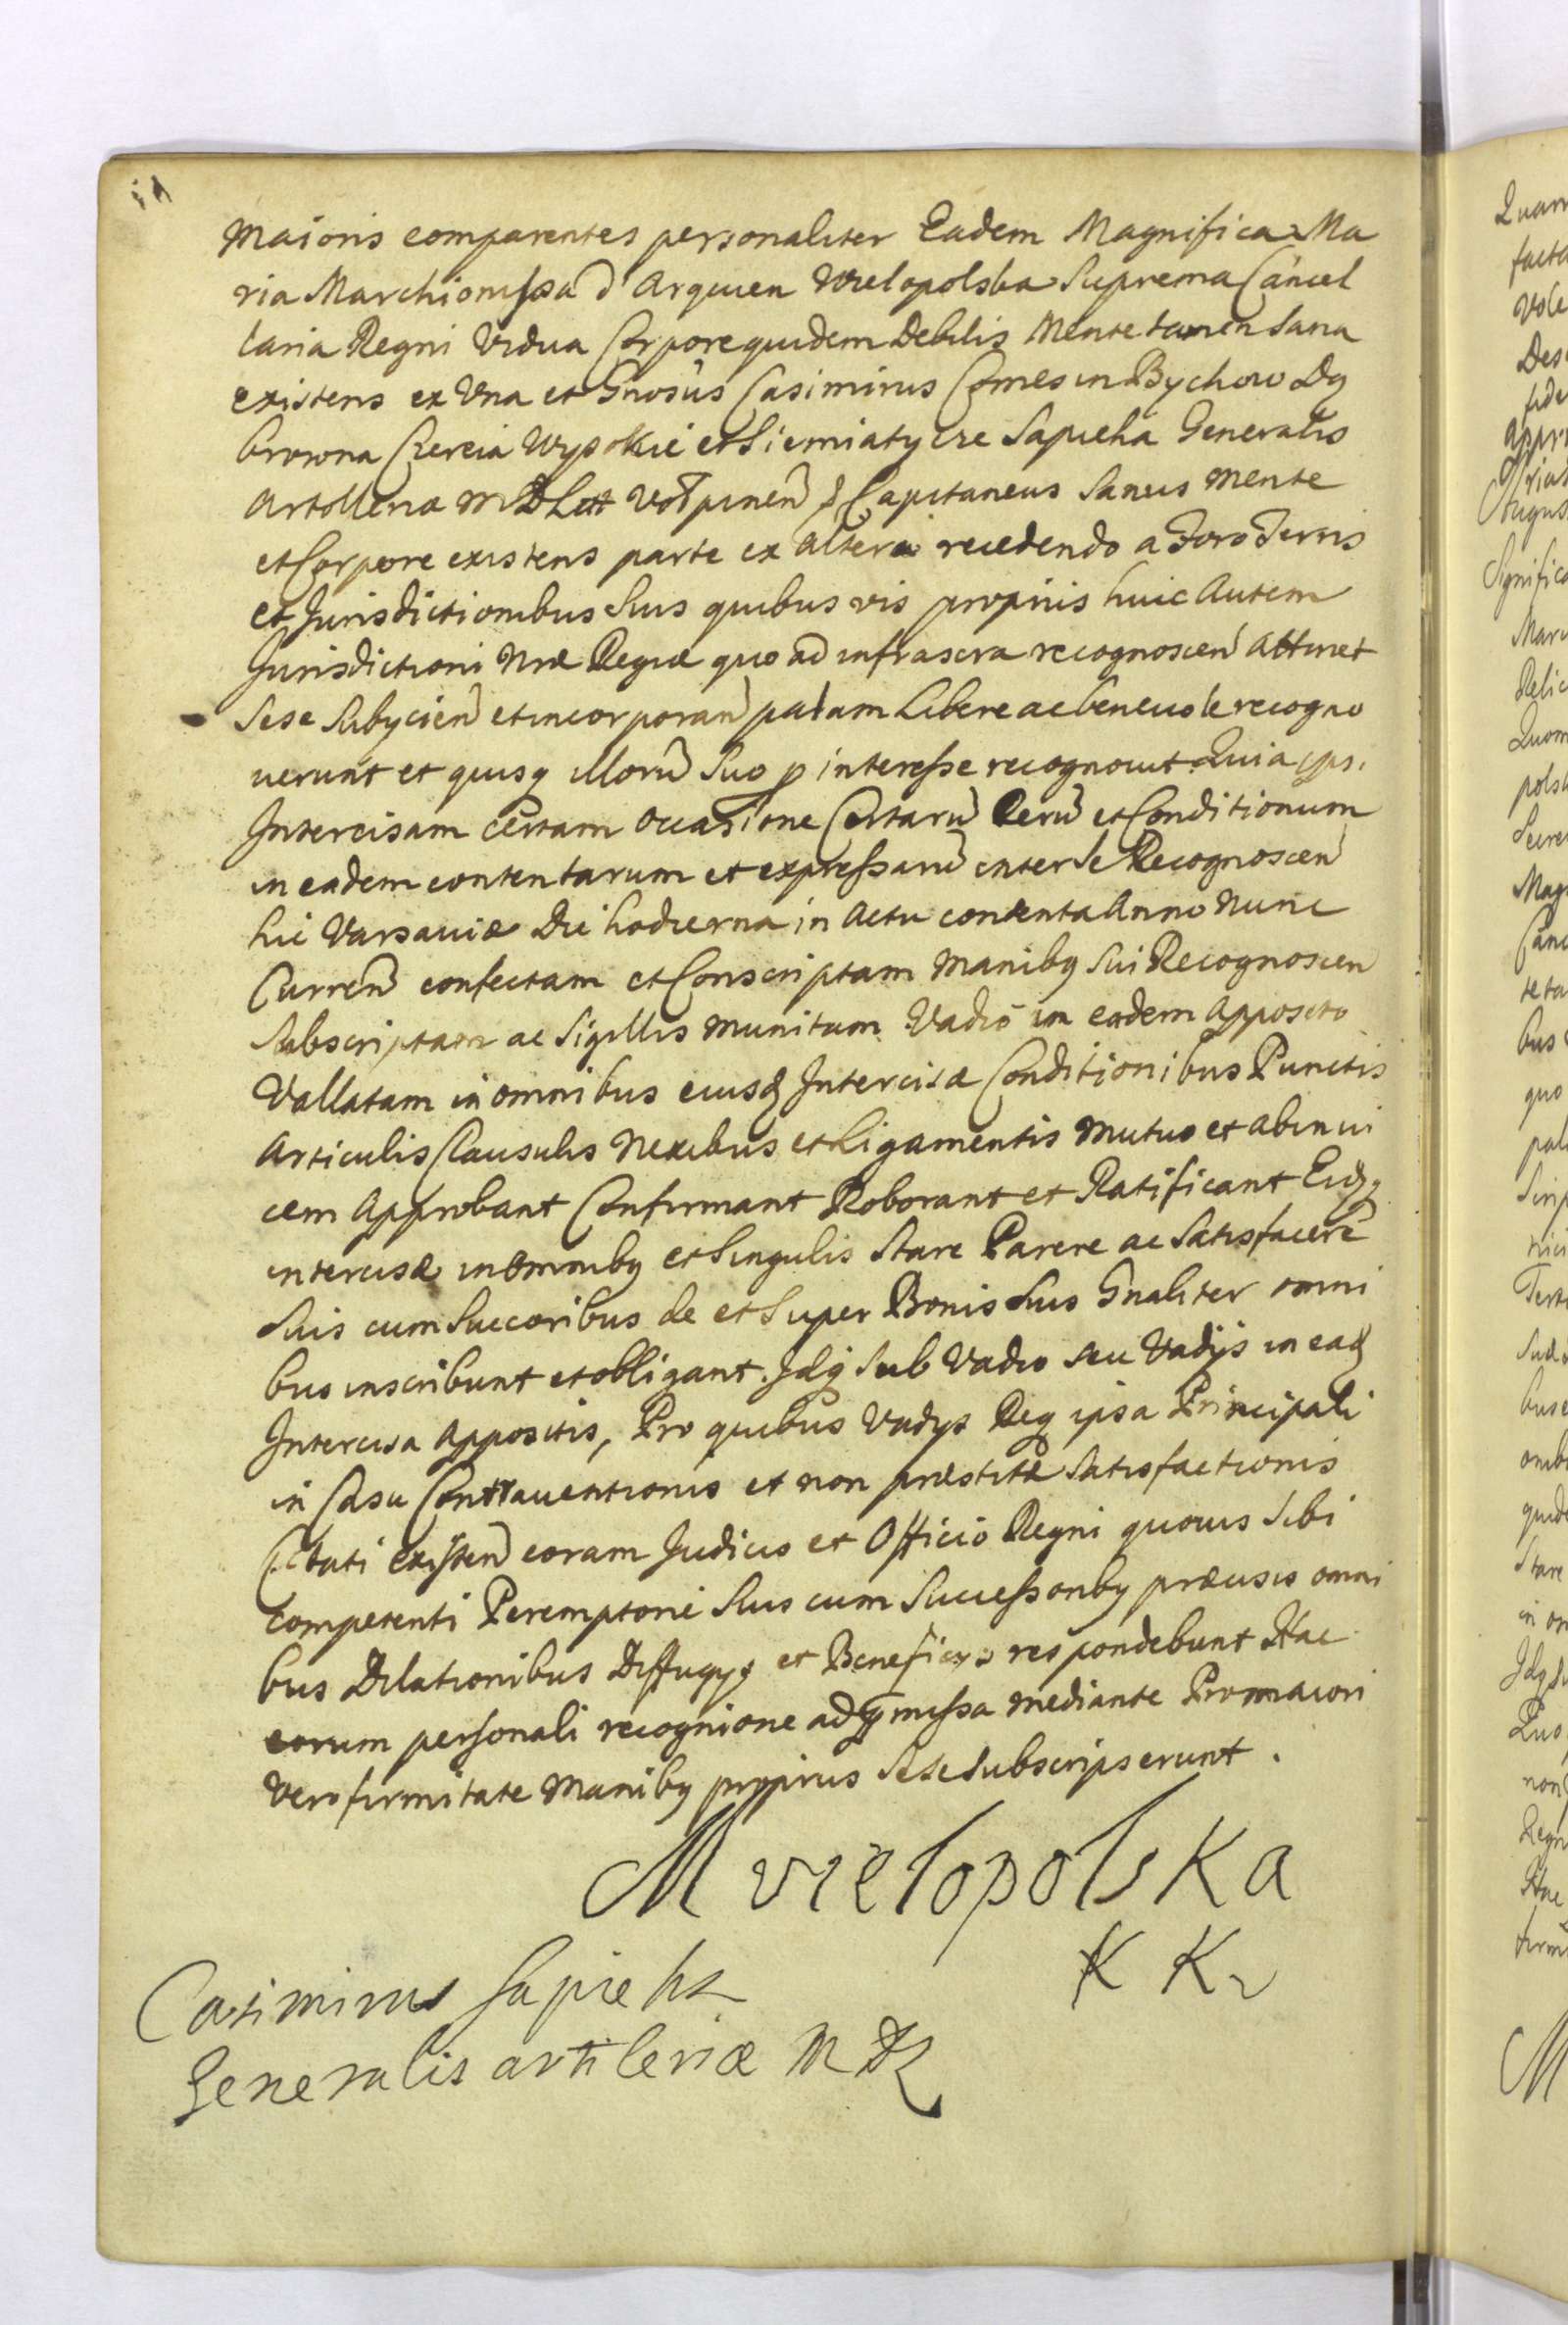 Maioris comparentes personaliter Eadem Magnifica Ma
ria Marchionissa d Arquien Wielopolska Suprema Cancel
laria Regni Vidua Corpore quidem Debilis Mente tamen Sana
existens ex Una et Gnosus Casimirus Comes in Bychow Dą
browna Czereia Wysokie et Siemiatycze Sapieha Generalis
Artolleria M D Litt Volpinen & Capitaneus Sanus Mente
et Corpore existens parte ex Altera recedendo a Foro Terris
et Jurisdictionibus Suis quibus vis propriis huic Autem
Jurisdictioni Nræ Regiæ quo ad infrascra recognoscen Attinet
Sese Subycien et incorporan palam Libere ac benevole recogno
uerunt et quisq illorū Suo p interesse recognovit Quia ips.
Intercisam certam occasione Certarū Rerū et Conditionum
in eadem contentarum et expressarū inter Se Recognoscen
hic Varsaviæ Die hodierna in Actu contenta Anno Nunc
Curren confectam et Conscriptam Manibq Sui Recognoscen
Subscriptam ac Sigillis munitam Vadio in eadem Apposito
Vallatam in omnibus eiusd Intercisæ Conditionibus Punctis
Articulis Clausulis Nexibus et Ligamentis Mutuo et abinui
cem Approbant Confirmant Roborant et Ratificant Eidq
intercisæ in Omnibq et Singulis Stare Parere ac Satisfacere
Suis cum Succoribus de et Super Bonis Suis Gnaliter omni
bus inscribunt et obligant. Idq Sub Vadio seu Vadijs in ead
Intercisa Appositis, Pro quibus Vadys Req ipsa Principali
in Casu Contraventionis et non præstitæ Satisfactionis
Citati existen coram Judicio et Officio Regni quovis Sibi
competenti Peremptorie Suis cum Successoribq præcisis omni
bus Dilationibus Diffugys et Beneficys respondebunt Hac
eorum personali recognione ad præmissa mediante Pro maiori
Vero firmitate Manibq propriis Sese Subscripserunt.
M vielopolska
K K
Casimirus Sapieha
Generalis artileriæ M D L